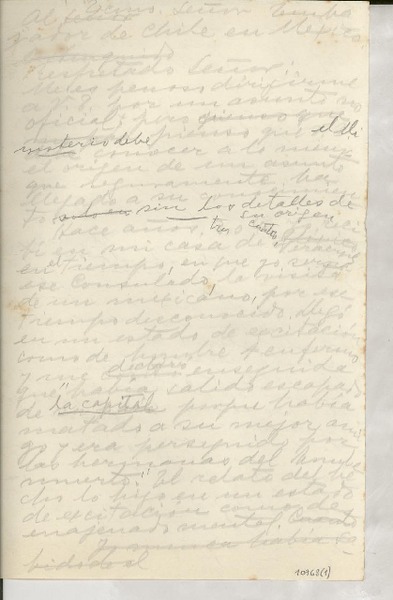 Al Excmo. Señor Emba
jador de Chile en México
Respetado Señor:
Me es penoso dirigirme
a V.E. por un asunto no
oficial; pero
pienso que el Mi
nisterio debe
conocer a lo menos
el origen de un asunto
que seguramente ha
llegado a su conocimien
to sin los detalles de
su origen
Hace años, tres o cuatro,
en mi casa de
en tiempo, en que yo
ese Consulado, la visita
de un mexicano, por ese
tiempo desconocido. Llegó
en un estado de excitación
como de hombre enfermo
y me declaró enseguida
que "había salido escapado
de la capital porque había
matado a su mejor ami
go y era perseguido por
las hermanas del hombre
muerto". El relato del
cho lo hizo en un estado
de excitación como de
enajenado mental.
Yo nunca había sa
bido de él
10968(1)